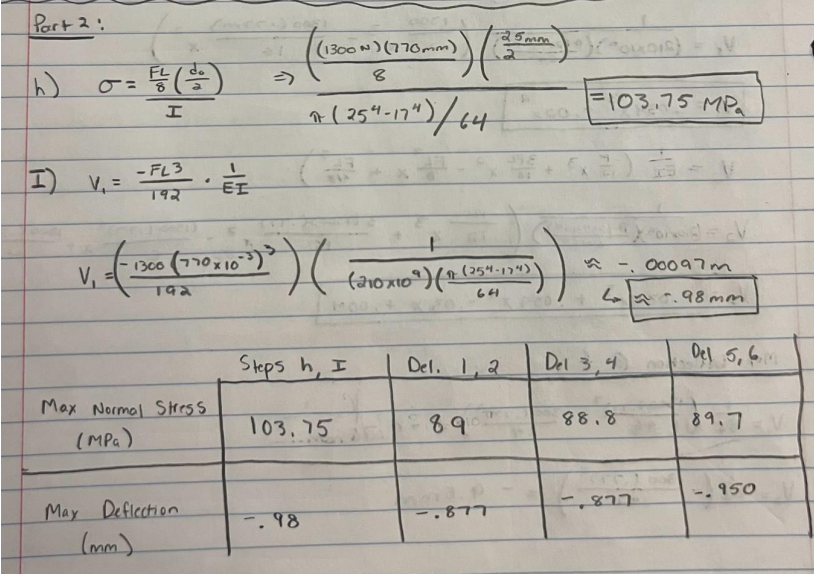 Part 2:
h) σ = FL/8 (do/2) / I ⇒ ((1300 N)(770mm)/8)(25mm/2) / π(25⁴-17⁴)/64 = 103.75 MPa
I) V₁ = -FL3/192 · 1/EI
V₁ = (-1300 (770x10⁻³)³/192)(1/(210x10⁹)(π(25⁴-17⁴)/64)) ≈ -.00097m
↳ ≈ -.98mm
Steps h, I Del. 1, 2 Del 3, 4 Del 5, 6
Max Normal Stress (MPa) 103.75 89 88.8 89.7
Max Deflection (mm) -.98 -.877 -.877 -.950